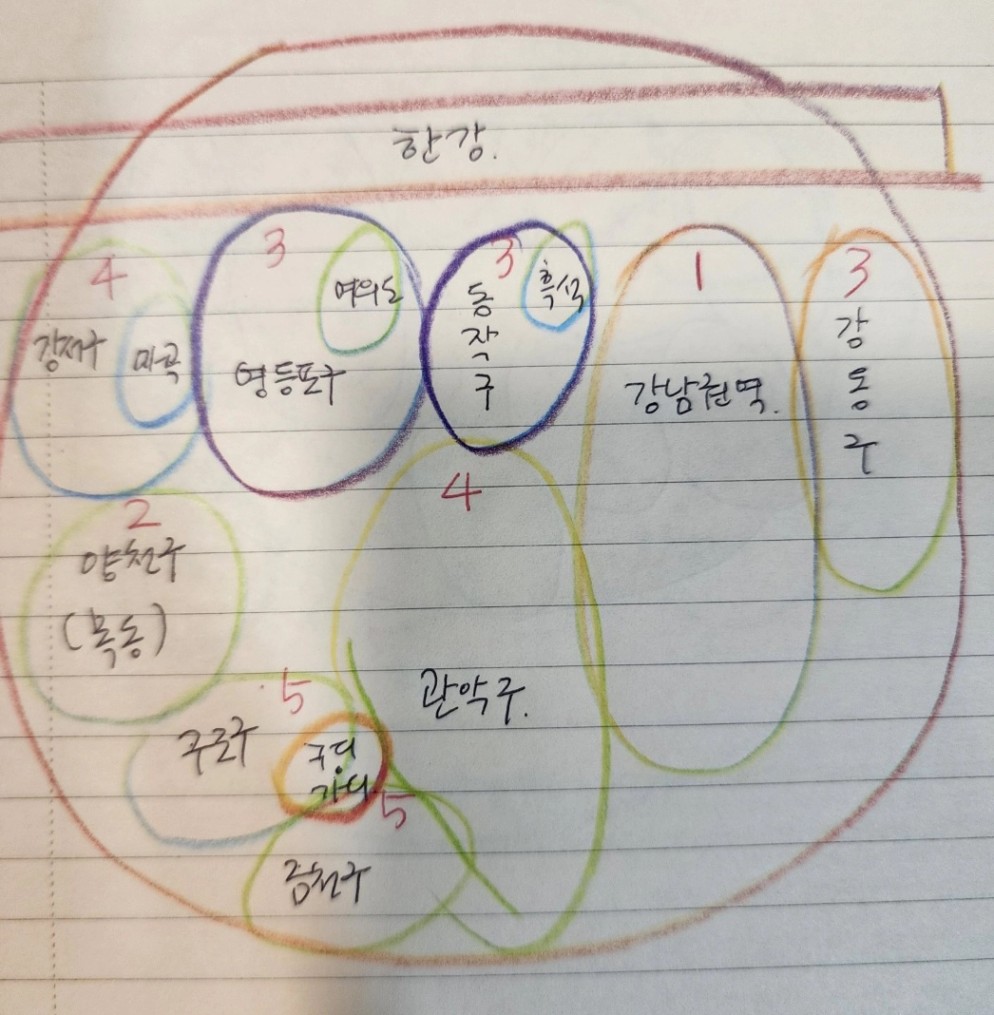 한강.
4
강서구
마곡
3
여의도
영등포구
3
동
작
구
흑석
1
강남권역.
3
강
동
구
2
양천구
(목동)
4
관악구.
5
구로구
구디
가디
5
금천구